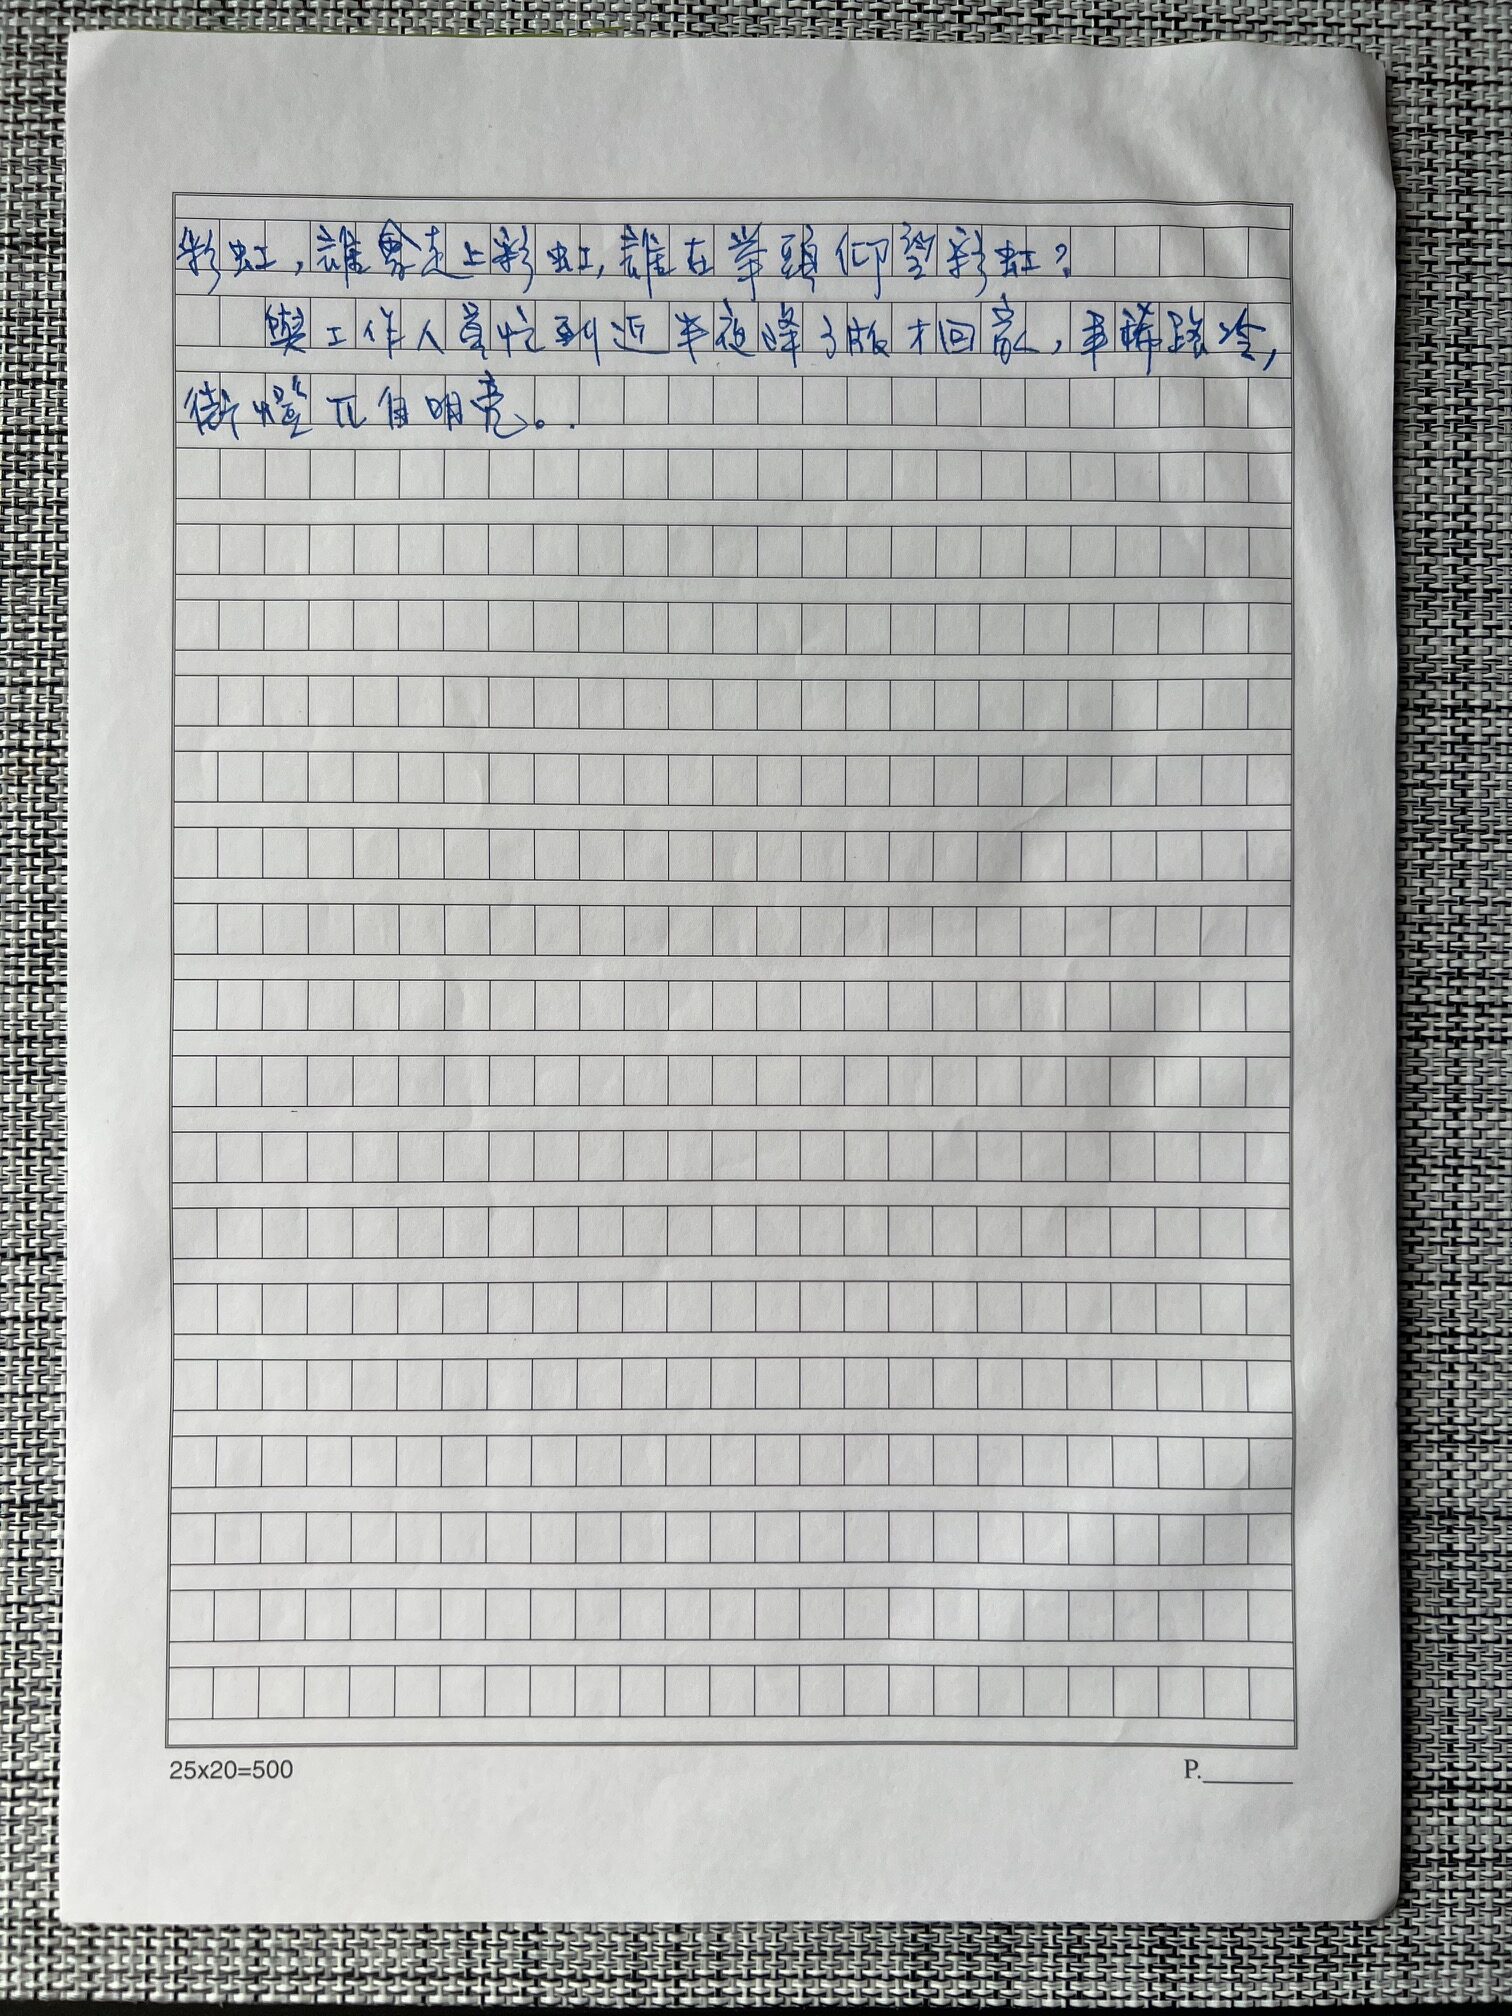 彩虹，誰會走上彩虹，誰在举頭仰望彩虹？
與工作人員忙到近半夜降了版才回家，車稀路冷，
街燈兀自明亮。
25x20=500
P.